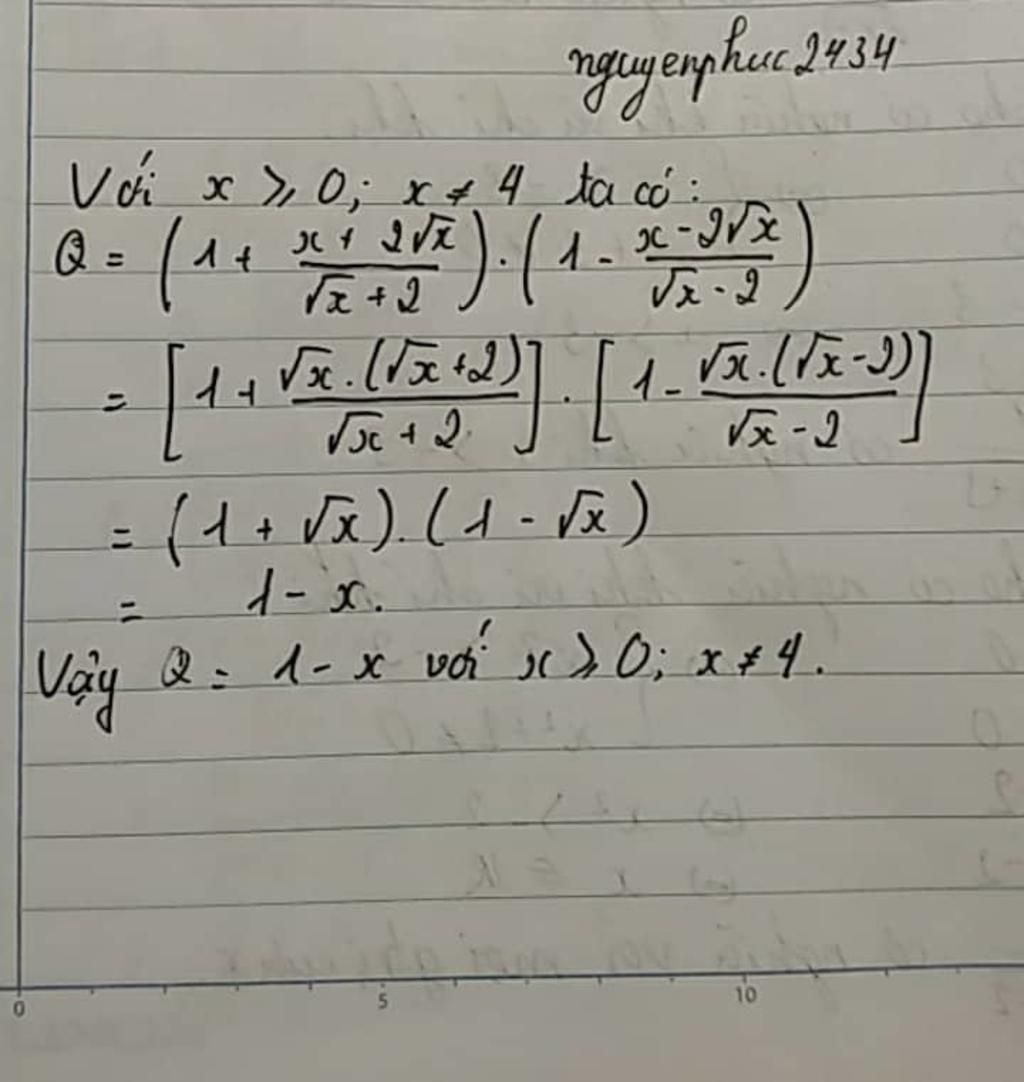 nguyenphuc2434
Với x ≥ 0; x ≠ 4 ta có:
Q = (1 + (x + 2√x)/(√x + 2)) . (1 - (x - 2√x)/(√x - 2))
= [1 + (√x.(√x + 2))/(√x + 2)] . [1 - (√x.(√x - 2))/(√x - 2)]
= (1 + √x).(1 - √x)
= 1 - x.
Vậy Q = 1 - x với x ≥ 0; x ≠ 4.
0 5 10